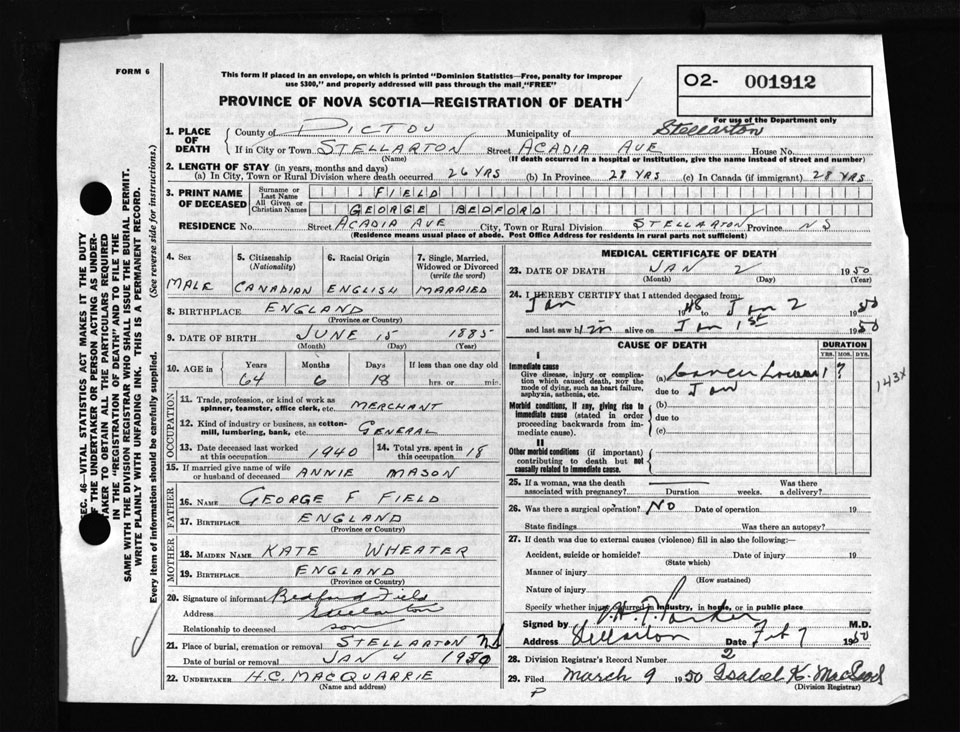 FORM 6
This form if placed in an envelope, on which is printed "Dominion Statistics—Free, penalty for improper
use $300," and properly addressed will pass through the mail, "FREE"
O2- 001912
For use of the Department only
PROVINCE OF NOVA SCOTIA—REGISTRATION OF DEATH
1. PLACE OF DEATH
County of PICTOU Municipality of Stellarton
If in City or Town STELLARTON Street ACADIA AVE House No.
(Name) (If death occurred in a hospital or institution, give the name instead of street and number)
2. LENGTH OF STAY (in years, months and days)
(a) In City, Town or Rural Division where death occurred 26 YRS (b) In Province 28 YRS (c) In Canada (if immigrant) 28 YRS
3. PRINT NAME OF DECEASED
Surname or Last Name FIELD
All Given or Christian Names GEORGE BEDFORD
RESIDENCE No. Street ACADIA AVE City, Town or Rural Division STELLARTON Province NS
(Residence means usual place of abode. Post Office Address for residents in rural parts not sufficient)
4. Sex MALE
5. Citizenship (Nationality) CANADIAN
6. Racial Origin ENGLISH
7. Single, Married, Widowed or Divorced (write the word) MARRIED
8. BIRTHPLACE ENGLAND
(Province or Country)
9. DATE OF BIRTH JUNE 15 1885
(Month) (Day) (Year)
10. AGE in Years Months Days If less than one day old
64 6 18 hrs. or min.
OCCUPATION
11. Trade, profession, or kind of work as spinner, teamster, office clerk, etc. MERCHANT
12. Kind of industry or business, as cotton-mill, lumbering, bank, etc. GENERAL
13. Date deceased last worked at this occupation 1940
14. Total yrs. spent in this occupation 18
15. If married give name of wife or husband of deceased ANNIE MASON
FATHER
16. NAME GEORGE F FIELD
17. BIRTHPLACE ENGLAND
(Province or Country)
MOTHER
18. MAIDEN NAME KATE WHEATER
19. BIRTHPLACE ENGLAND
(Province or Country)
20. Signature of informant Bedford Field
Address Stellarton
Relationship to deceased son
21. Place of burial, cremation or removal STELLARTON NS
Date of burial or removal JAN 4 1950
22. UNDERTAKER H.C. MACQUARRIE
(Name and address)
MEDICAL CERTIFICATE OF DEATH
23. DATE OF DEATH JAN 2 1950
(Month) (Day) (Year)
24. I HEREBY CERTIFY that I attended deceased from:
Jan 1948 to Jan 2 1950
and last saw him alive on Jan 1st 1950
CAUSE OF DEATH DURATION
YRS. MOS. DYS.
I
Immediate cause
Give disease, injury or complication which caused death, NOT the mode of dying, such as heart failure, asphyxia, asthenia, etc.
(a) Cancer 1 ?
due to
143X
Morbid conditions, if any, giving rise to immediate cause (stated in order proceeding backwards from immediate cause).
(b)
due to
(c)
II
Other morbid conditions (if important) contributing to death but not causally related to immediate cause.
25. If a woman, was the death associated with pregnancy? Duration weeks. Was there a delivery?
26. Was there a surgical operation? NO Date of operation 19
State findings Was there an autopsy?
27. If death was due to external causes (violence) fill in also the following:—
Accident, suicide or homicide? Date of injury 19
(State which)
Manner of injury
(How sustained)
Nature of injury
Specify whether injury occurred in industry, in home, or in public place
Signed by Parker M.D.
Address Stellarton Date Feb 7 1950
28. Division Registrar's Record Number 2
29. Filed March 9 1950 Isabel K. MacLeod
(Division Registrar)
P
SEC. 46—VITAL STATISTICS ACT MAKES IT THE DUTY
OF THE UNDERTAKER OR PERSON ACTING AS UNDER-
TAKER TO OBTAIN ALL THE PARTICULARS REQUIRED
IN THE "REGISTRATION OF DEATH" AND TO FILE THE
SAME WITH THE DIVISION REGISTRAR WHO SHALL ISSUE THE BURIAL PERMIT.
WRITE PLAINLY WITH UNFADING INK. THIS IS A PERMANENT RECORD.
Every item of information should be carefully supplied. (See reverse side for instructions.)